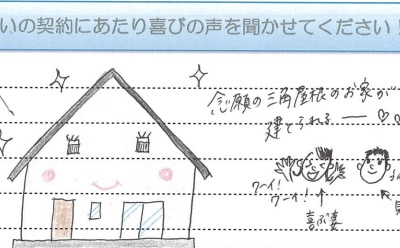 いの契約にあたり喜びの声を聞かせてください!
念願の三角屋根のお家が
建てられるー♡♡
ワーイ!
ウーオ!↑
喜ぶ妻